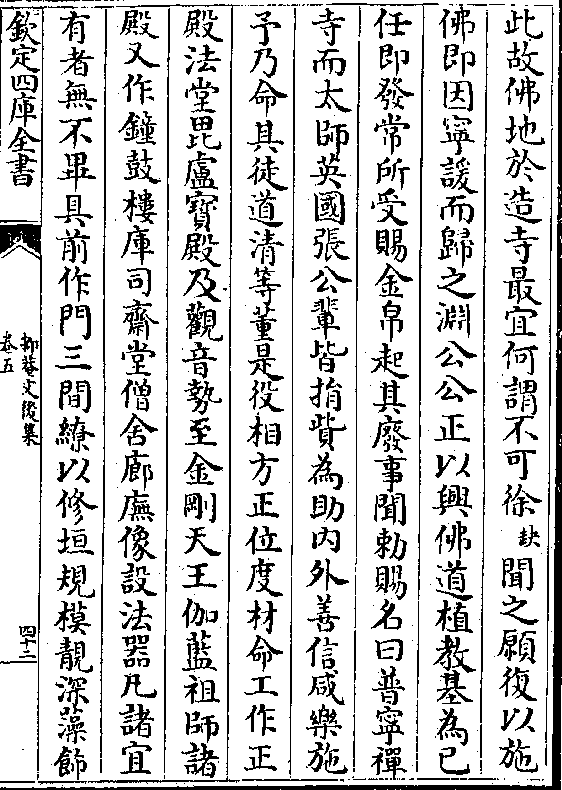 此故佛地於造寺最宜何謂不可徐缺聞之願復以施
佛即因寧諼而歸之淵公公正以興佛道植教基為已
任即發常所受賜金帛起其廢事聞勅賜名曰普寧禪
寺而太師英國張公輩皆捐貲為助内外善信咸樂施
予乃命其徒道清等董是役相方正位度材命工作正
殿法堂毘盧寶殿及觀音勢至金剛天王伽藍祖師諸
殿又作鐘鼓樓庫司齋堂僧舍廊廡像設法器凡諸宜
有者無不畢具前作門三間繚以修垣規模靚深藻飾
欽定四庫全書
抑菴文後集
卷五
四十二